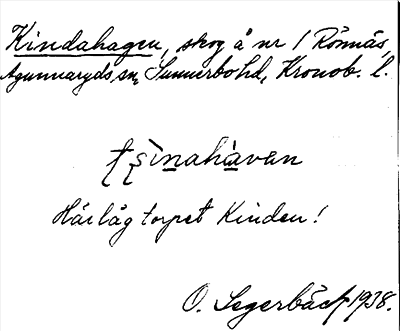 Kindahagen, skog å nr 1 Rönnäs,
Agunnaryds sn, Sunnerbo hd, Kronob. l.
tʂìnahàvan
Här låg torpet Kinden!
O. Segerbäck 1938.